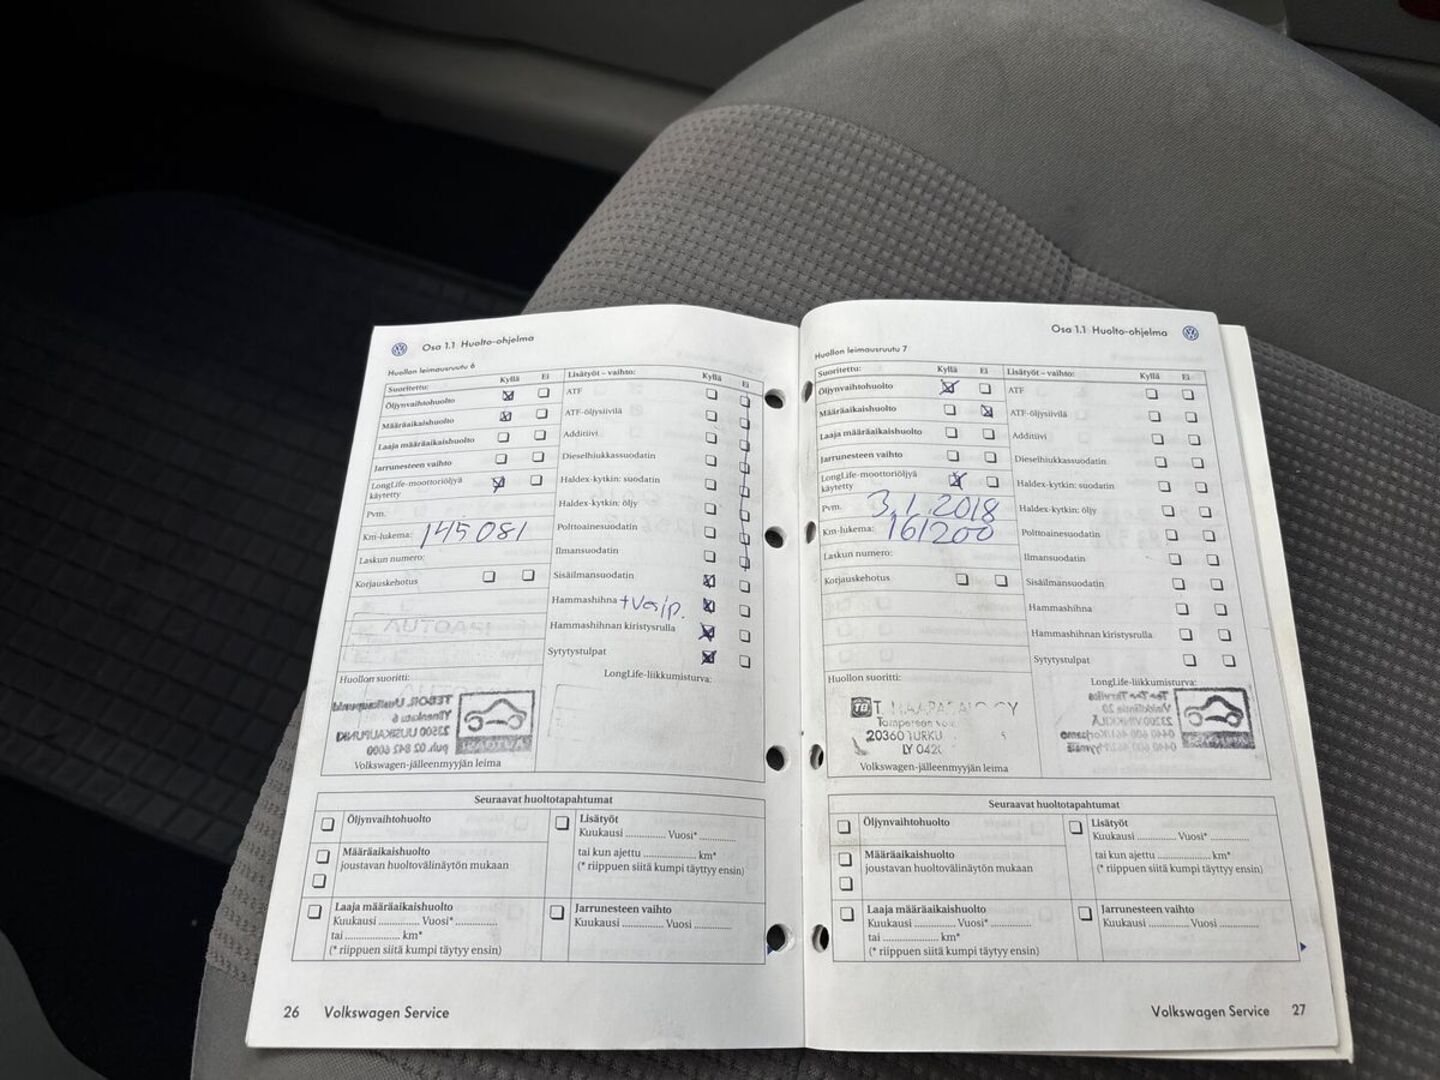 Osa 1.1 Huolto-ohjelma
Huollon leimausruutu 6
Suoritettu: Kyllä Ei
Öljynvaihtohuolto
Määräaikaishuolto
Laaja määräaikaishuolto
Jarrunesteen vaihto
LongLife-moottoriöljyä
käytetty
Pvm.
Km-lukema: 145081
Laskun numero:
Korjauskehotus
Huollon suoritti:
Volkswagen-jälleenmyyjän leima
Lisätyöt – vaihto: Kyllä Ei
ATF
ATF-öljysiivilä
Additiivi
Dieselhiukkassuodatin
Haldex-kytkin: suodatin
Haldex-kytkin: öljy
Polttoainesuodatin
Ilmansuodatin
Sisäilmansuodatin
Hammashihna + Vesip.
Hammashihnan kiristysrulla
Sytytystulpat
LongLife-liikkumisturva:
Seuraavat huoltotapahtumat
Öljynvaihtohuolto
Määräaikaishuolto
joustavan huoltovälinäytön mukaan
Laaja määräaikaishuolto
Kuukausi .............. Vuosi* ..............
tai .................... km*
(* riippuen siitä kumpi täytyy ensin)
Lisätyöt
Kuukausi .............. Vuosi* ............
tai kun ajettu ................... km*
(* riippuen siitä kumpi täyttyy ensin)
Jarrunesteen vaihto
Kuukausi .............. Vuosi .............
26 Volkswagen Service
Osa 1.1 Huolto-ohjelma
Huollon leimausruutu 7
Suoritettu: Kyllä Ei
Öljynvaihtohuolto
Määräaikaishuolto
Laaja määräaikaishuolto
Jarrunesteen vaihto
LongLife-moottoriöljyä
käytetty
Pvm. 3.1.2018
Km-lukema: 161200
Laskun numero:
Korjauskehotus
Huollon suoritti:
TB
Tampereen
20360 TURKU
Volkswagen-jälleenmyyjän leima
Lisätyöt – vaihto: Kyllä Ei
ATF
ATF-öljysiivilä
Additiivi
Dieselhiukkassuodatin
Haldex-kytkin: suodatin
Haldex-kytkin: öljy
Polttoainesuodatin
Ilmansuodatin
Sisäilmansuodatin
Hammashihna
Hammashihnan kiristysrulla
Sytytystulpat
LongLife-liikkumisturva:
Seuraavat huoltotapahtumat
Öljynvaihtohuolto
Määräaikaishuolto
joustavan huoltovälinäytön mukaan
Laaja määräaikaishuolto
Kuukausi .............. Vuosi* ..............
tai .................... km*
(* riippuen siitä kumpi täytyy ensin)
Lisätyöt
Kuukausi .............. Vuosi* ............
tai kun ajettu ................... km*
(* riippuen siitä kumpi täyttyy ensin)
Jarrunesteen vaihto
Kuukausi .............. Vuosi .............
Volkswagen Service 27